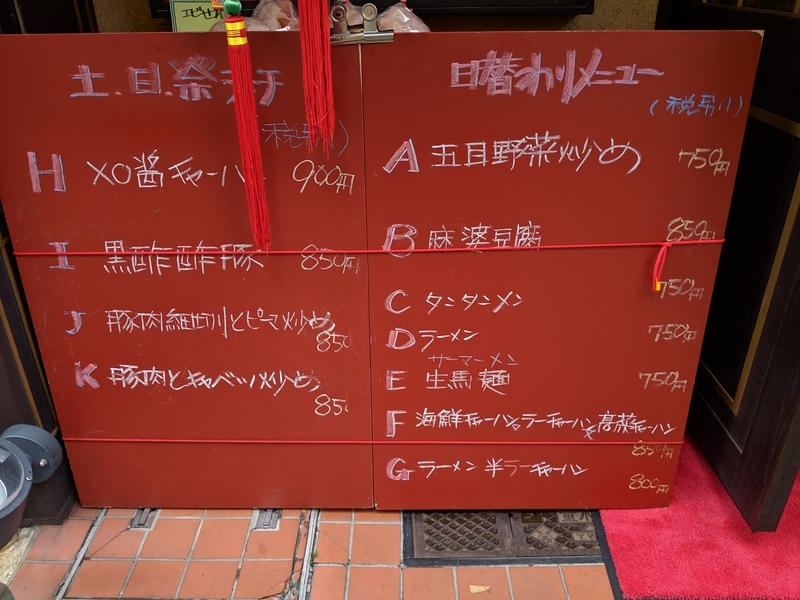 エビせん
土.日.祭ランチ
(税別)
H XO醤チャーハン 900円
I 黒酢酢豚 850円
J 豚肉細切りとピーマン炒め 850
K 豚肉とキャベツ炒め 850
日替わりメニュー
(税別)
A 五目野菜炒め 750円
B 麻婆豆腐 850円
C タンタンメン 750円
D ラーメン 750円
サーマーメン
E 生馬麺 750円
F 海鮮チャーハン ラーチャーハン 高菜チャーハン
850円
G ラーメン 半ラーチャーハン 800円